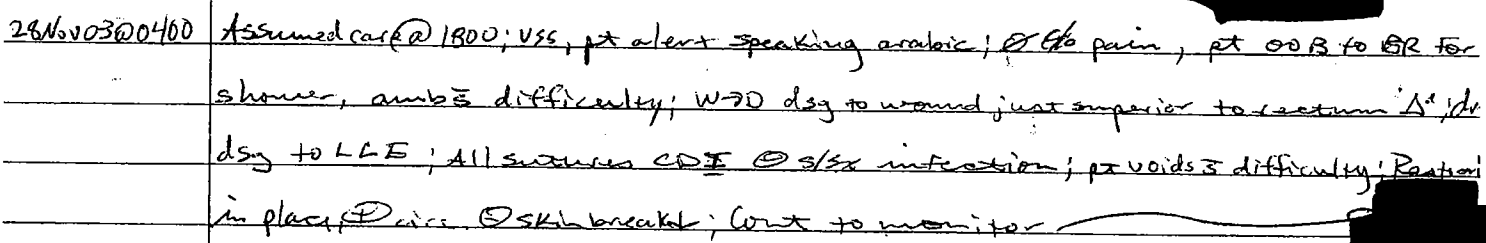 28Nov03@0400 Assumed care @ 1800; VSS, pt alert speaking arabic; ⊖ c/o pain, pt OOB to BR for
shower, amb s̄ difficulty; W→D dsg to wound just superior to rectum Δ'd; dr
dsg to LLE; All sutures CDI ⊖ s/sx infection; pt voids s̄ difficulty; Restraint
in place, ⊕ circ ⊖ skin breakd; Cont to monitor